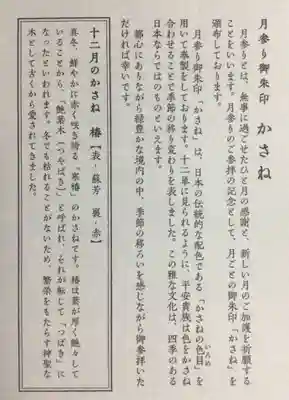 月参り御朱印 かさね
月参りとは、無事に過ごせたひと月の感謝と、新しい月のご加護を祈願する
ことをいいます。月参りのご参拝の記念として、月ごとの御朱印「かさね」を
頒布しております。
月参り御朱印「かさね」は、日本の伝統的な配色である「かさねの色目」を
いろめ
用いて奉製をしております。十二単に見られるように、平安貴族は色をかさね
合わせることで季節の移り変わりを表しました。この雅な文化は、四季のある
日本ならではのものといえます。
都心にありながら緑豊かな境内の中、季節の移ろいを感じながら御参拝いた
だければ幸いです。
十二月のかさね 椿【表・蘇芳 裏・赤】
真冬、鮮やかに赤く咲き誇る「寒椿」のかさねです。椿は葉が厚く艶々して
いることから、「艶葉木(つやばき)」と呼ばれ、それが転じて「つばき」に
なったといわれます。冬でも枯れることがないため、繁栄をもたらす神聖な
木として古くから愛されてきました。